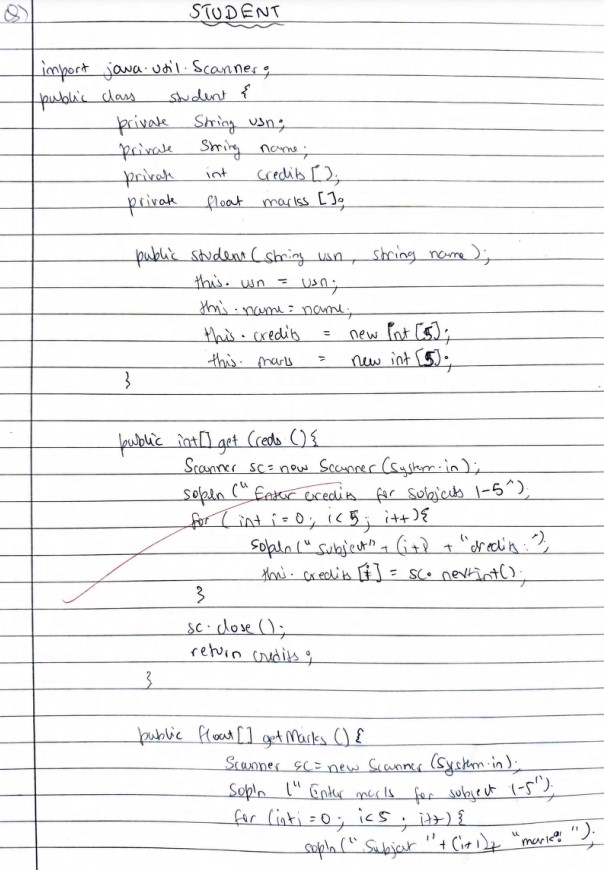 Q) STUDENT
import java.util.Scanner;
public class student {
private String usn;
private String name;
private int credits [];
private float marks [];
public student (string usn, string name);
this. usn = usn;
this. name = name;
this. credits = new int [5];
this. marks = new int [5];
}
public int[] get Creds () {
Scanner sc = new Scanner (System.in);
sopln (" Enter credits for subjects 1-5");
for ( int i = 0; i<5; i++){
sopln (" subject" + (i+1) + "credits:");
this. credits [i] = sc. nextint();
}
sc.close ();
return credits;
}
public float[] getMarks () {
Scanner sc = new Scanner (System.in);
Sopln (" Enter marks for subject 1-5");
for (int i = 0; i<5; i++) {
sopln (" Subject " + (i+1) + "marks: ");